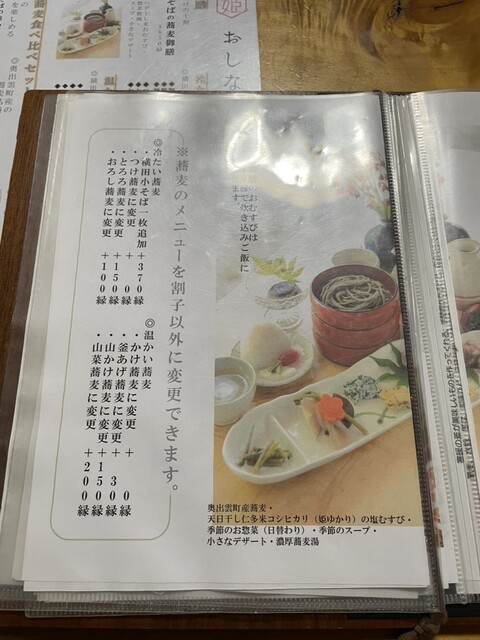 姫
おしな
そばの蕎麦御膳
蕎麦食べ比べセッ
を楽しめる
◎奥出雲町産の
※蕎麦のメニューを割子以外に変更できます。
◎冷たい蕎麦
・横田小そば一枚追加 +370縁
・つけ蕎麦に変更 + 0縁
・とろろ蕎麦に変更 +150縁
・おろし蕎麦に変更 +100縁
◎温かい蕎麦
・かけ蕎麦に変更 + 0縁
・釜あげ蕎麦に変更 + 30縁
・山かけ蕎麦に変更 +150縁
・山菜蕎麦に変更 +200縁
のおむすびは
で炊き込みご飯に
ます。
奥出雲町産蕎麦・
天日干し仁多米コシヒカリ(姫ゆかり)の塩むすび・
季節のお惣菜(日替わり)・季節のスープ・
小さなデザート・濃厚蕎麦湯